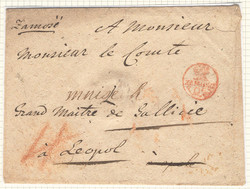 Zamosć
A Monsieur
Monsieur le Comte
Grand Maitre de Gallicie
à Leopol